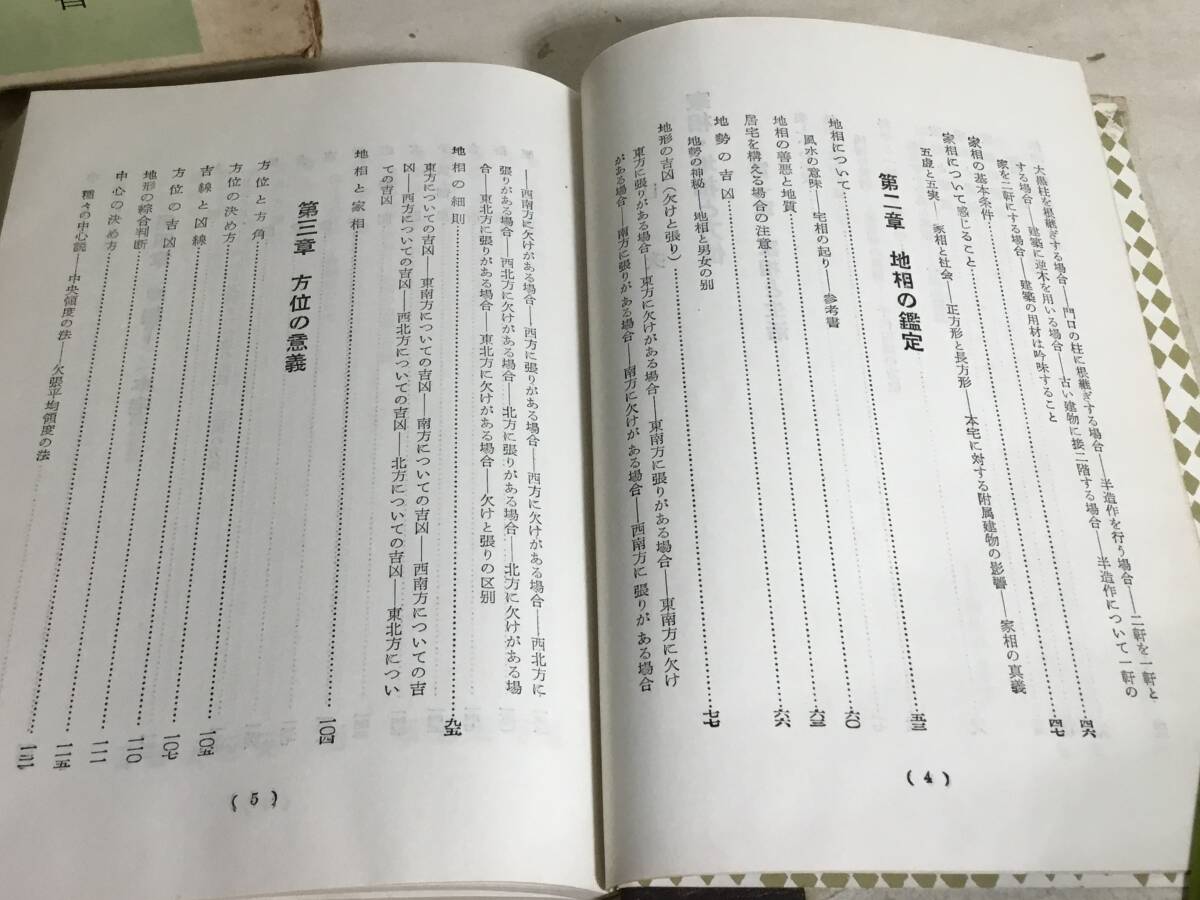 大黒柱を根継ぎする場合――門口の柱に根継ぎする場合――半造作を行う場合――二軒を一軒と
する場合――建築に逆木を用いる場合――古い建物に接二階する場合――半造作について一軒の
家を二軒にする場合――建築の用材は吟味すること
家相の基本条件……四六
家相について感じること……四七
五虚と五実――家相と社会――正方形と長方形――本宅に対する附属建物の影響――家相の真義
第二章 地相の鑑定……五三
地相について……六〇
風水の意味――宅相の起り――参考書
地相の善悪と地質……六三
居宅を構える場合の注意……六六
地勢の吉凶……七七
地勢の神秘――地相と男女の別
地形の吉凶(欠けと張り)
東方に張りがある場合――東方に欠けがある場合――東南方に張りがある場合――東南方に欠け
がある場合――南方に張りがある場合――南方に欠けがある場合――西南方に張りがある場合
(4)
――西南方に欠けがある場合――西方に張りがある場合――西方に欠けがある場合――西北方に
張りがある場合――西北方に欠けがある場合――北方に張りがある場合――北方に欠けがある場
合――東北方に張りがある場合――東北方に欠けがある場合――欠けと張りの区別
地相の細則……九五
東方についての吉凶――東南方についての吉凶――南方についての吉凶――西南方についての吉
凶――西方についての吉凶――西北方についての吉凶――北方についての吉凶――東北方につい
ての吉凶
地相と家相……一〇四
第三章 方位の意義
方位と方角
方位の決め方……一〇五
吉線と凶線……一〇七
方位の吉凶……一一〇
地形の綜合判断……一一一
中心の決め方……一一五
種々の中心説――中央領度の法――欠張平均領度の法
(5)